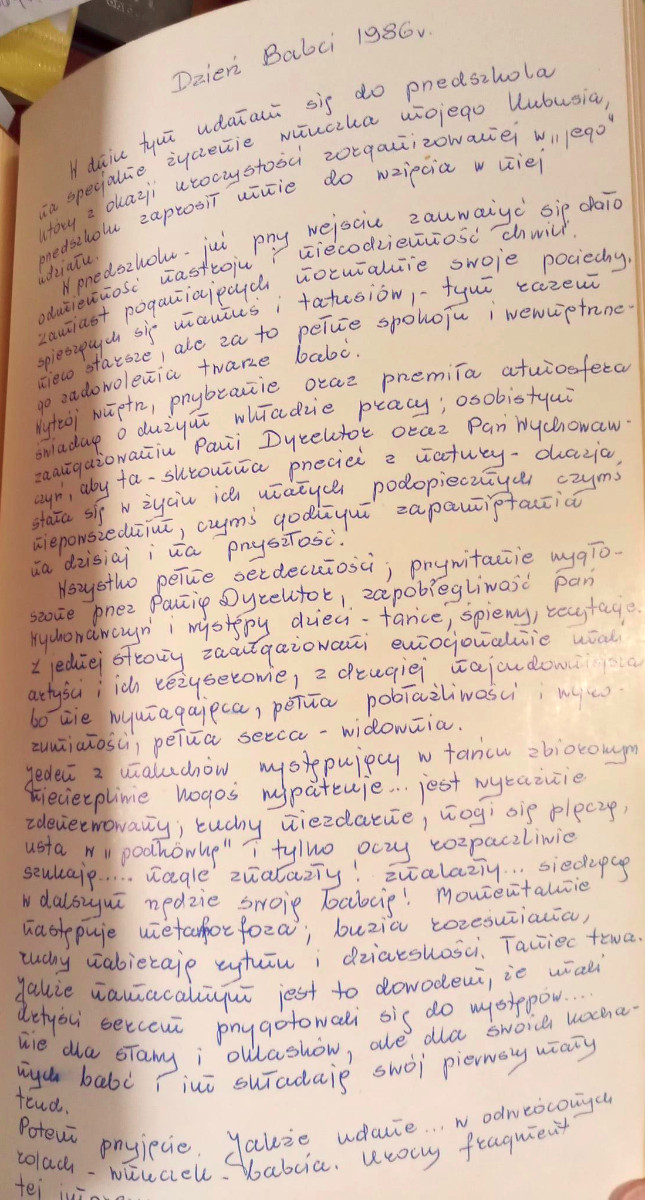 Dzień Babci 1986r.
W dniu tym udałam się do przedszkola
na specjalne życzenie wnuczka mojego Kubusia,
który z okazji uroczystości zorganizowanej w „jego"
przedszkolu zaprosił mnie do wzięcia w niej
udziału.
W przedszkolu - już przy wejściu zauważyć się dało
odmienność nastroju i niecodzienność chwili.
Zamiast poganiających normalnie swoje pociechy,
spieszących się mamuś i tatusiów, - tym razem
nieco starsze, ale za to pełne spokoju i wewnętrzne-
go zadowolenia twarze babć.
Wystrój wnętrz, przybranie oraz przemiła atmosfera
świadczą o dużym wkładzie pracy; osobistym
zaangażowaniu Pani Dyrektor oraz Pań Wychowaw-
czyń, aby ta - skromna przecież z natury - okazja,
stała się w życiu ich małych podopiecznych czymś
niepowszednim, czymś godnym zapamiętania
na dzisiaj i na przyszłość.
Wszystko pełne serdeczności; przywitanie wygło-
szone przez Panią Dyrektor, zapobiegliwość Pań
Wychowawczyń i występy dzieci - tańce, śpiewy, recytacje.
Z jednej strony zaangażowani emocjonalnie mali
artyści i ich reżyserowie, z drugiej najcudowniejsza
bo nie wymagająca, pełna pobłażliwości i wyro-
zumiałości, pełna serca - widownia.
Jeden z maluchów występujący w tańcu zbiorowym
niecierpliwie kogoś wypatruje... jest wyraźnie
zdenerwowany, ruchy niezdarne, nogi się plączą,
usta w „podkówkę" i tylko oczy rozpaczliwie
szukają..... nagle znalazły! znalazły... siedzącą
w dalszym rzędzie swoją babcię! Momentalnie
następuje metamorfoza; buzia roześmiana,
ruchy nabierają rytmu i dziarskości. Taniec trwa.
Jakże namacalnym jest to dowodem, że mali
artyści sercem przygotowali się do występów....
nie dla sławy i oklasków, ale dla swoich kocha-
nych babć i im składają swój pierwszy mały
trud.
Potem przyjęcie. Jakże udane... w odwróconych
rolach - wnuczek - babcia. Uroczy fragment
tej